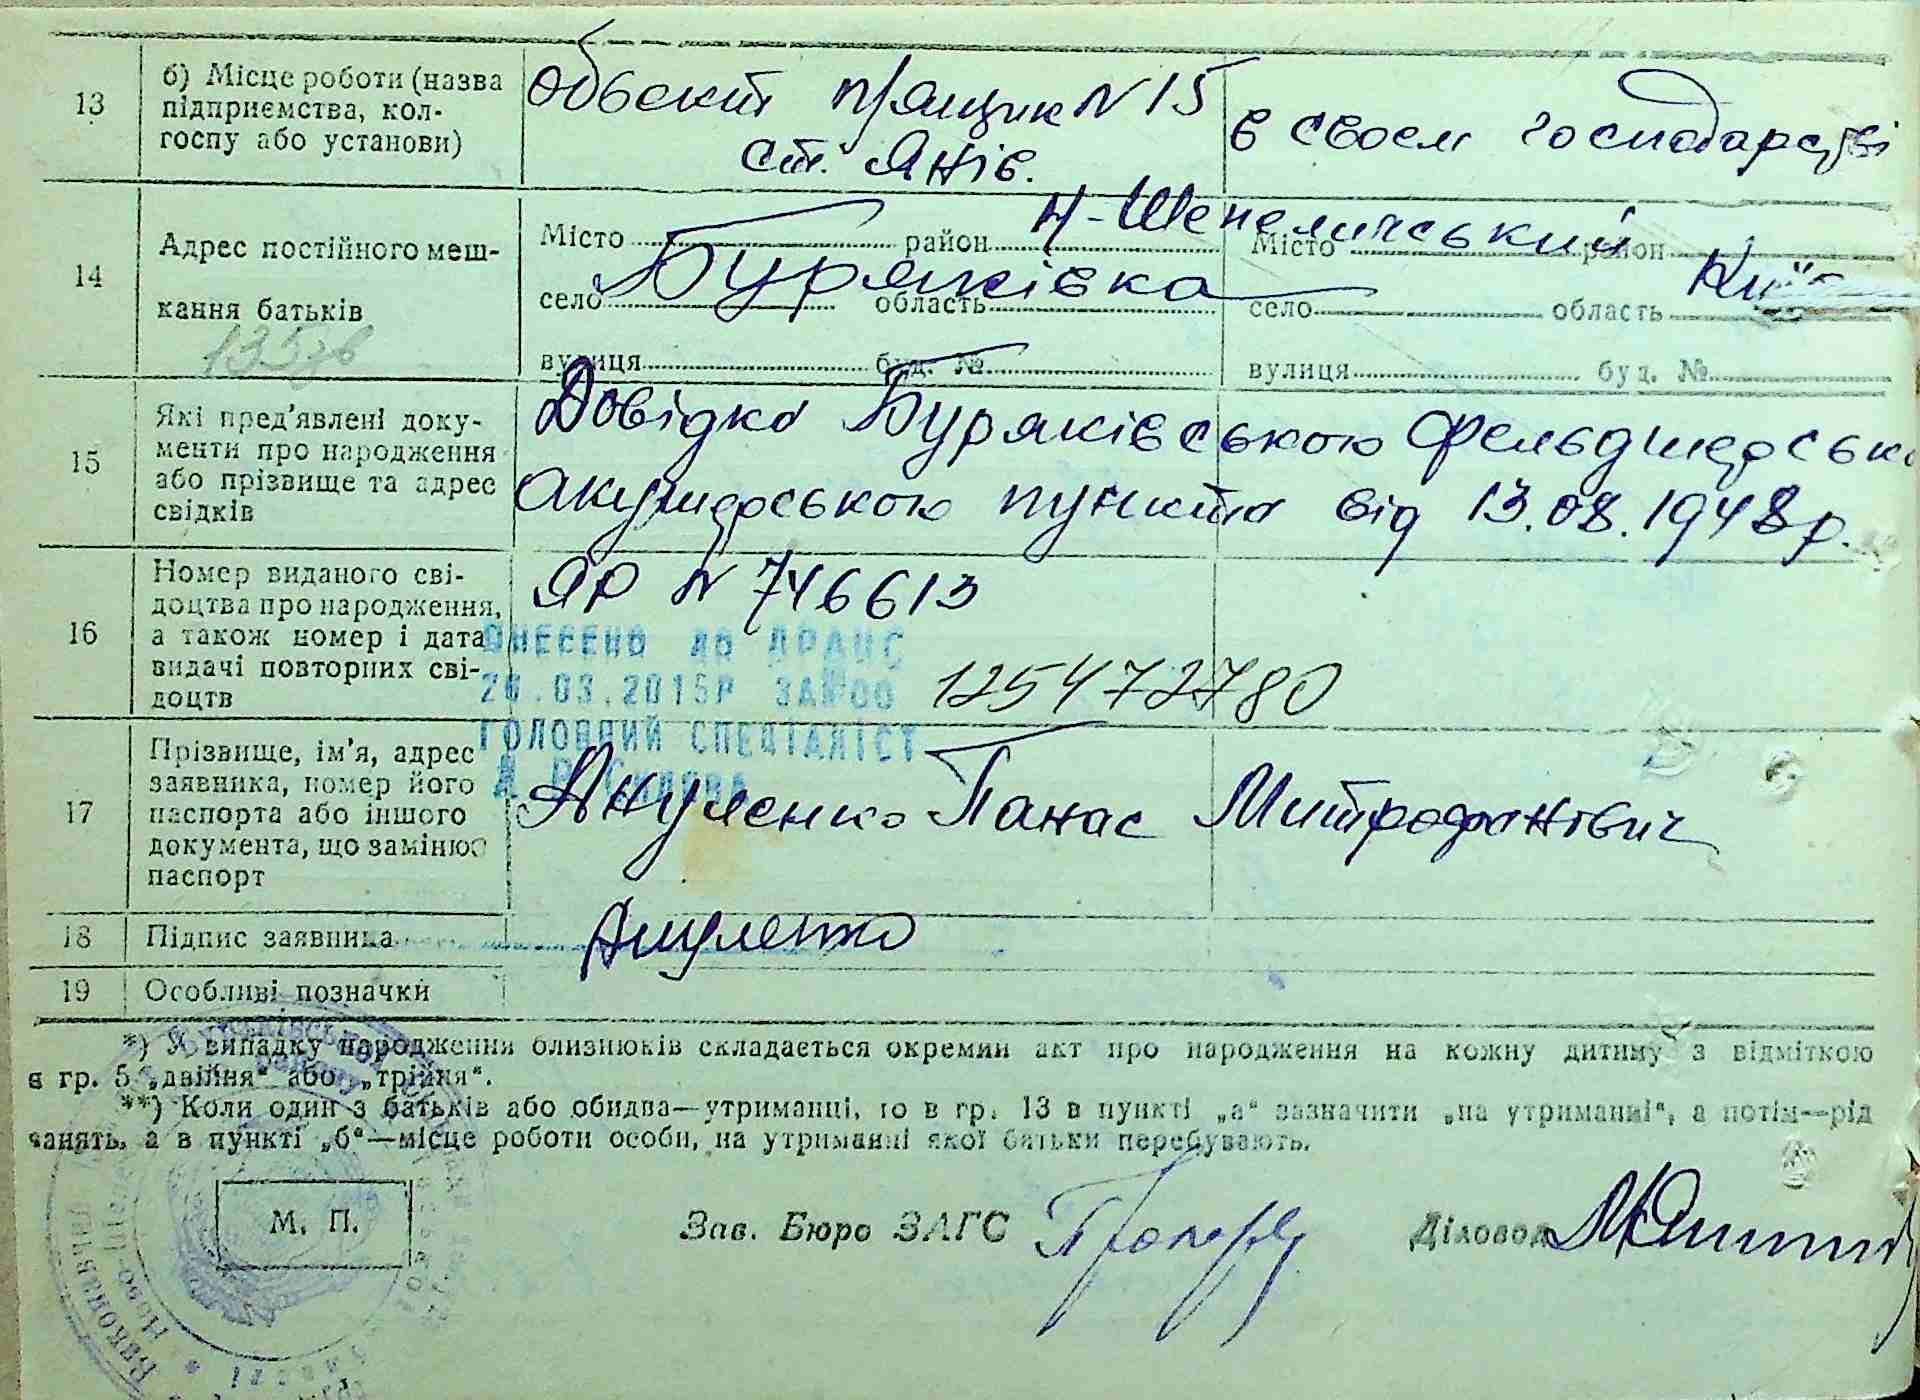 13 б) Місце роботи (назва підприємства, колгоспу або установи)
Объект п/ящик N 15
ст. Янів.
в своєм господарстві
14 Адрес постійного меш-
кання батьків
Місто район Н-Шепеличський Місто район
село Буряківка область село область Київ
вулиця буд. № вулиця буд. №
15 Які пред'явлені доку-
менти про народження
або прізвище та адрес
свідків
Довідка Буряківською фельдшерсько
акушерською пункта від 13.08.1948 р.
16 Номер виданого сві-
доцтва про народження,
а також номер і дата
видачі повторних сві-
доцтв
ЯР N 746613
ВНЕСЕНО ДО ДРАЦС
26.03.2015Р ЗА №00
125472780
ГОЛОВНИЙ СПЕЦІАЛІСТ
17 Прізвище, ім'я, адрес
заявника, номер його
паспорта або іншого
документа, що замінює
паспорт
Панас Митрофанович
18 Підпис заявника
19 Особливі позначки
*) У випадку народження близнюків складається окремий акт про народження на кожну дитину з відміткою
в гр. 5 „двійня“ або „трійня“.
**) Коли один з батьків або обидва—утриманці, то в гр. 13 в пункті „а“ зазначити „на утриманні“, а потім—рід
занять, а в пункті „б“—місце роботи особи, на утриманні якої батьки перебувають.
М. П.
Зав. Бюро ЗАГС
Діловод